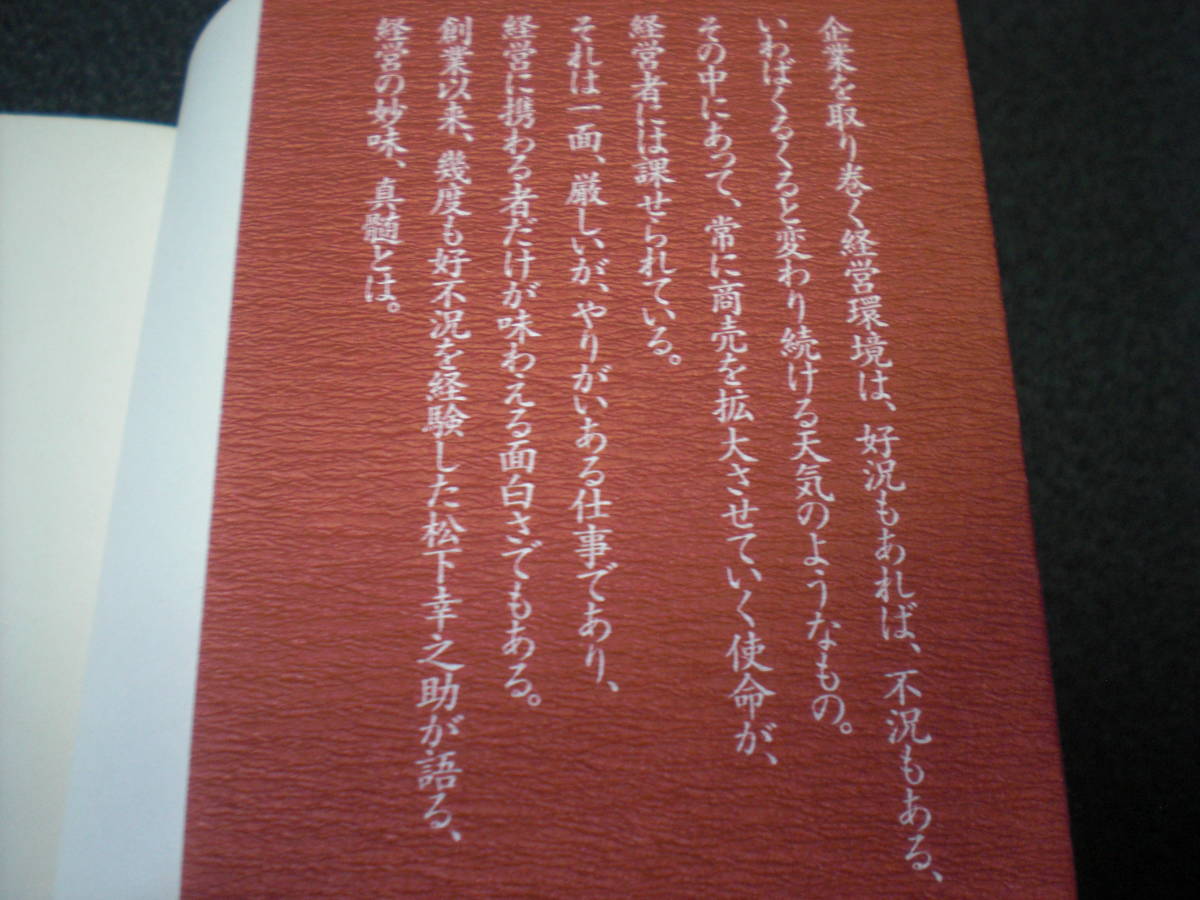 企業を取り巻く経営環境は、好況もあれば、不況もある、
いわばくるくると変わり続ける天気のようなもの。
その中にあって、常に商売を拡大させていく使命が、
経営者には課せられている。
それは一面、厳しいが、やりがいある仕事であり、
経営に携わる者だけが味わえる面白さでもある。
創業以来、幾度も好不況を経験した松下幸之助が語る、
経営の妙味、真髄とは。